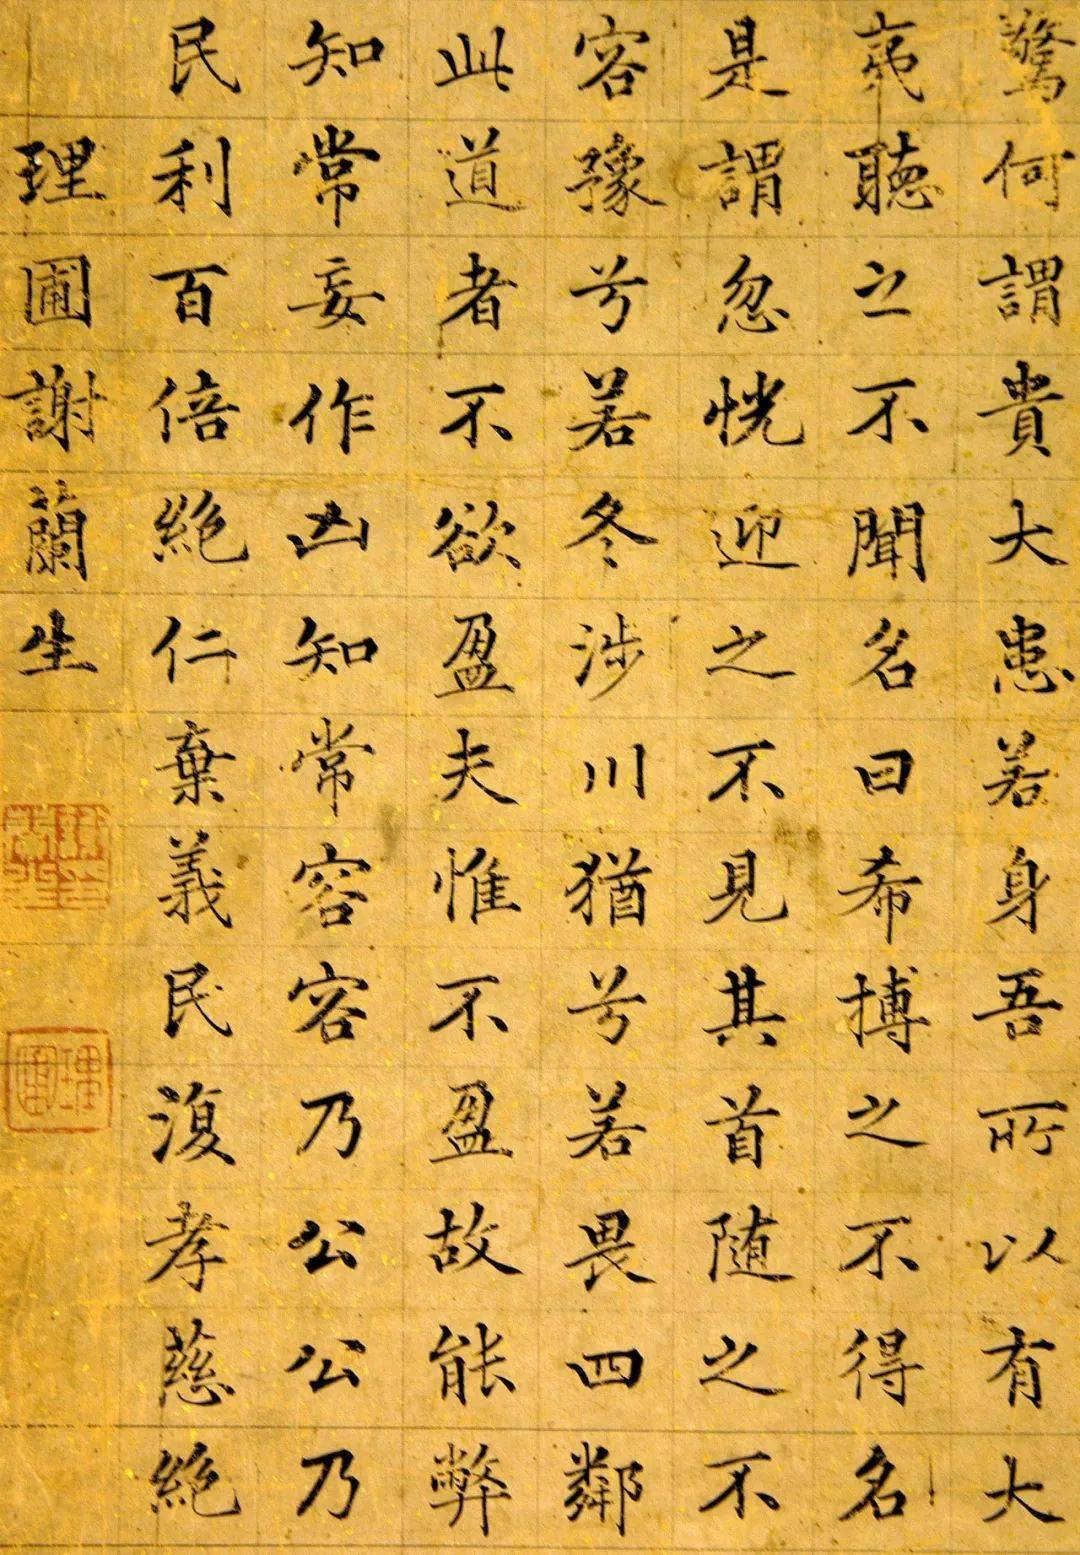 驚何謂貴大患若身吾所以有大
夷聽之不聞名曰希搏之不得名
是謂忽恍迎之不見其首随之不
容豫兮若冬涉川猶兮若畏四鄰
此道者不欲盈夫惟不盈故能弊
知常妄作凶知常容容乃公公乃
民利百倍絕仁棄義民復孝慈絕
理圃謝蘭生
理圃